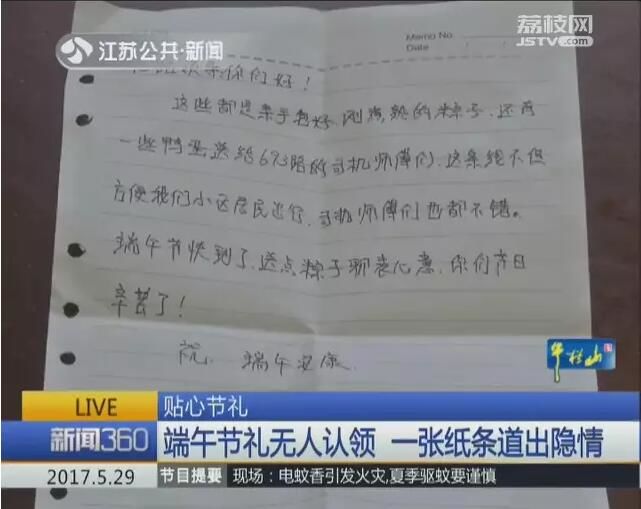 江苏公共·新闻
荔枝网
JSTV.com
Memo No.
Date
你们好！
这些都是亲手包好、刚煮熟的粽子、还有
一些鸭蛋送给693路的司机师傅们、这条线不但
方便我们小区居民出行、司机师傅们也都不错。
端午节快到了、送点粽子聊表心意、你们节日
辛苦了！
祝 端午安康
牛栏山
LIVE
贴心节礼
新闻360
端午节礼无人认领 一张纸条道出隐情
2017.5.29
节目提要
现场：电蚊香引发火灾,夏季驱蚊要谨慎